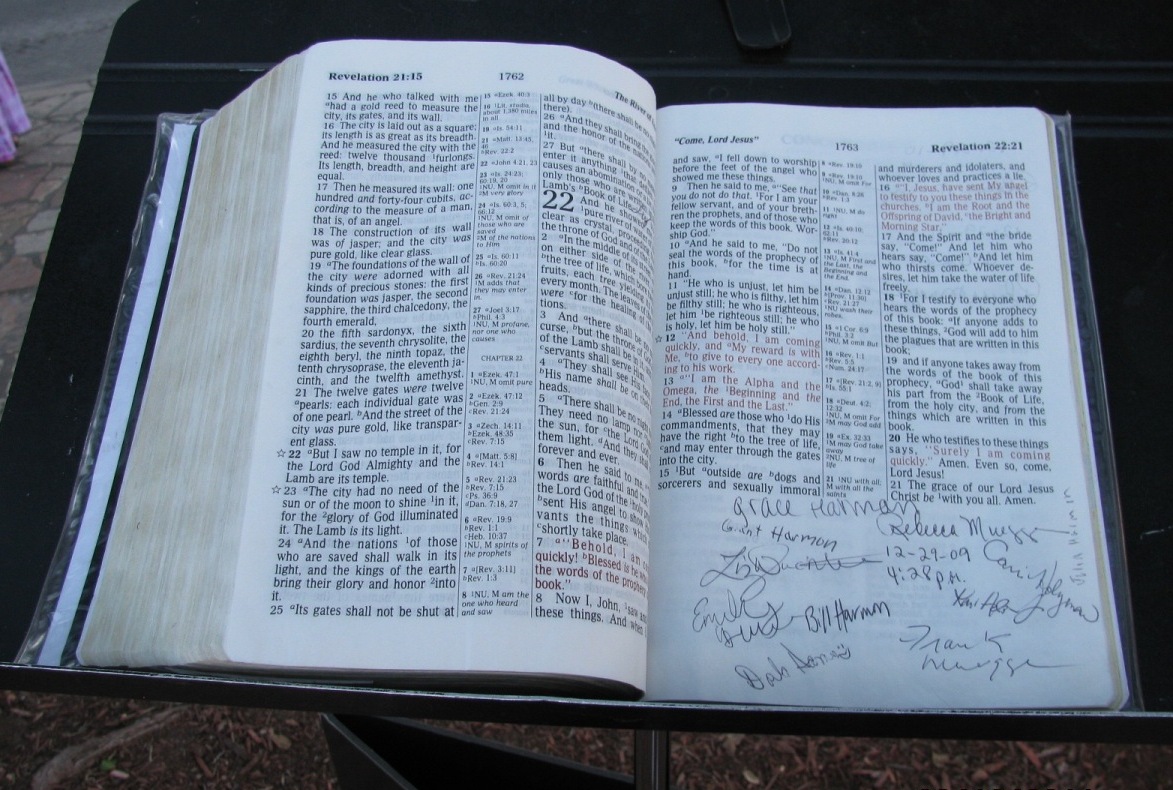 Revelation 21:15
1762
The River of
15 And he who talked with me
ᵃhad a gold reed to measure the
city, its gates, and its wall.
16 The city is laid out as a square;
its length is as great as its breadth.
And he measured the city with the
reed: twelve thousand ¹furlongs.
Its length, breadth, and height are
equal.
17 Then he measured its wall: one
hundred and forty-four cubits, ac-
cording to the measure of a man,
that is, of an angel.
18 The construction of its wall
was of jasper; and the city was
pure gold, like clear glass.
19 ᵃThe foundations of the wall of
the city were adorned with all
kinds of precious stones: the first
foundation was jasper, the second
sapphire, the third chalcedony, the
fourth emerald,
20 the fifth sardonyx, the sixth
sardius, the seventh chrysolite, the
eighth beryl, the ninth topaz, the
tenth chrysoprase, the eleventh ja-
cinth, and the twelfth amethyst.
21 The twelve gates were twelve
ᵃpearls: each individual gate was
of one pearl. ᵇAnd the street of the
city was pure gold, like transpar-
ent glass.
☆22 ᵃBut I saw no temple in it, for
the Lord God Almighty and the
Lamb are its temple.
☆23 ᵃThe city had no need of the
sun or of the moon to shine ¹in it,
for the ²glory of God illuminated
it. The Lamb is its light.
24 ᵃAnd the nations ¹of those
who are saved shall walk in its
light, and the kings of the earth
bring their glory and honor ²into
it.
25 ᵃIts gates shall not be shut at
15 ᵃEzek. 40:3
16 ¹Lit. stadia,
about 1,380 miles
in all
19 ᵃIs. 54:11
21 ᵃMatt. 13:45,
46
ᵇRev. 22:2
22 ᵃJohn 4:21, 23
23 ᵃIs. 24:23;
60:19, 20
¹NU, M omit in it
²M very glory
24 ᵃIs. 60:3, 5;
66:12
¹NU, M omit of
those who are
saved
²M of the nations
to Him
25 ᵃIs. 60:11
ᵇIs. 60:20
26 ᵃRev. 21:24
¹M adds that
they may enter
in.
27 ᵃJoel 3:17
ᵇPhil. 4:3
¹NU, M profane,
nor one who
causes
CHAPTER 22
1 ᵃEzek. 47:1
¹NU, M omit pure
2 ᵃEzek. 47:12
ᵇGen. 2:9
ᶜRev. 21:24
3 ᵃZech. 14:11
ᵇEzek. 48:35
ᶜRev. 7:15
4 ᵃ[Matt. 5:8]
ᵇRev. 14:1
5 ᵃRev. 21:23
ᵇRev. 7:15
ᶜPs. 36:9
ᵈDan. 7:18, 27
6 ᵃRev. 19:9
ᵇRev. 1:1
ᶜHeb. 10:37
¹NU, M spirits of
the prophets
7 ᵃ[Rev. 3:11]
ᵇRev. 1:3
8 ¹NU, M am the
one who heard
and saw
all by day ᵃ(there shall be no
there).
26 ᵃAnd they shall bring the
and the honor of the nations
¹it.
27 But ᵃthere shall by
enter it anything ¹that
causes an abomination or
only those who are written
Lamb's ᵇBook of Life.
22 And he showed
¹pure river of
clear as crystal, proceeding
the throne of God and of
2 ᵃIn the middle of
on either side of the
ᵇthe tree of life, which
fruits, each tree yielding
every month. The leaves of
were ᶜfor the healing of
tions.
3 And ᵃthere shall be
curse, ᵇbut the throne of God
of the Lamb shall be in it,
ᶜservants shall serve Him.
4 ᵃThey shall see His
ᵇHis name shall be on their
heads.
5 ᵃThere shall be no night
They need no lamp nor
the sun, for ᶜthe Lord God
them light. ᵈAnd they shall
forever and ever.
6 Then he said to me,
words are faithful and
the Lord God of the holy
ᵇsent His angel to show
vants the things which
ᶜshortly take place.
7 ᵃ"Behold, I am coming
quickly! ᵇBlessed is he who
the words of the prophecy
book."
8 Now I, John, ¹saw and
these things. And when
"Come, Lord Jesus"
1763
Revelation 22:21
and saw, ᵃI fell down to worship
before the feet of the angel who
showed me these things.
9 Then he said to me, ᵃ"See that
you do not do that. ¹For I am your
fellow servant, and of your breth-
ren the prophets, and of those who
keep the words of this book. Wor-
ship God."
10 ᵃAnd he said to me, "Do not
seal the words of the prophecy of
this book, ᵇfor the time is at
hand.
11 "He who is unjust, let him be
unjust still; he who is filthy, let him
be filthy still; he who is righteous,
let him ¹be righteous still; he who
is holy, let him be holy still."
☆12 "And behold, I am coming
quickly, and ᵃMy reward is with
Me, ᵇto give to every one accord-
ing to his work.
13 ᵃ"I am the Alpha and the
Omega, the ¹Beginning and the
End, the First and the Last."
14 ᵃBlessed are those who ¹do His
commandments, that they may
have the right ᵇto the tree of life,
ᶜand may enter through the gates
into the city.
15 ¹But ᵃoutside are ᵇdogs and
sorcerers and sexually immoral
8 ᵃRev. 19:10
9 ᵃRev. 19:10
¹NU, M omit For
10 ᵃDan. 8:26
ᵇRev. 1:3
11 ¹NU, M do
right
12 ᵃIs. 40:10;
62:11
ᵇRev. 20:12
13 ᵃIs. 41:4
¹NU, M First and
the Last, the
Beginning and
the End.
14 ᵃDan. 12:12
ᵇ[Prov. 11:30]
ᶜRev. 21:27
¹NU wash their
robes,
15 ᵃ1 Cor. 6:9
ᵇPhil. 3:2
¹NU, M omit But
16 ᵃRev. 1:1
ᵇRev. 5:5
ᶜNum. 24:17
17 ᵃ[Rev. 21:2, 9]
ᵇIs. 55:1
18 ᵃDeut. 4:2;
12:32
¹NU, M omit For
²M may God add
19 ᵃEx. 32:33
¹M may God take
away
²NU, M tree of
life
21 ¹NU with all;
M with all the
saints
and murderers and idolaters, and
whoever loves and practices a lie.
16 ᵃ"I, Jesus, have sent My angel
to testify to you these things in the
churches. ᵇI am the Root and the
Offspring of David, ᶜthe Bright and
Morning Star."
17 And the Spirit and ᵃthe bride
say, "Come!" And let him who
hears say, "Come!" ᵇAnd let him
who thirsts come. Whoever de-
sires, let him take the water of life
freely.
18 ¹For I testify to everyone who
hears the words of the prophecy
of this book: ᵃIf anyone adds to
these things, ²God will add to him
the plagues that are written in this
book;
19 and if anyone takes away from
the words of the book of this
prophecy, ᵃGod¹ shall take away
his part from the ²Book of Life,
from the holy city, and from the
things which are written in this
book.
20 He who testifies to these things
says, "Surely I am coming
quickly." Amen. Even so, come,
Lord Jesus!
21 The grace of our Lord Jesus
Christ be ¹with you all. Amen.
Grace Harman
Grant Harmon
Rebecca Muegge
12-29-09
4:28 p.m.
Emily
Bill Harmon
Frank
Muegge